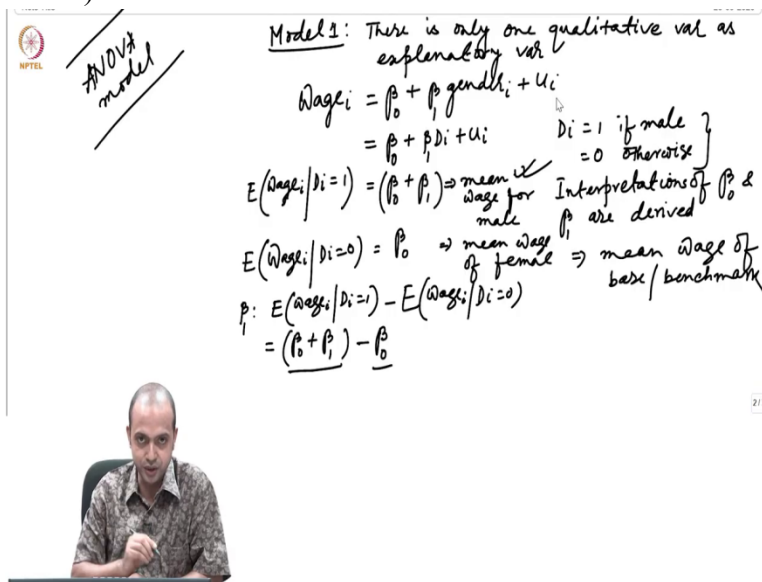 NPTEL
ANOVA
model
Model 1: There is only one qualitative var as
explanatory var
Wageᵢ = β₀ + β₁ genderᵢ + uᵢ
= β₀ + β₁ Dᵢ + uᵢ
Di = 1 if male
= 0 otherwise
E(Wageᵢ | Di=1) = (β₀ + β₁) ⇒ mean
wage for
male
Interpretations of β₀ &
β₁ are derived
E(Wageᵢ | Di=0) = β₀ ⇒ mean wage
of female ⇒ mean wage of
base/benchmark
β₁: E(Wageᵢ | Di=1) - E(Wageᵢ | Di=0)
= (β₀ + β₁) - β₀
2/